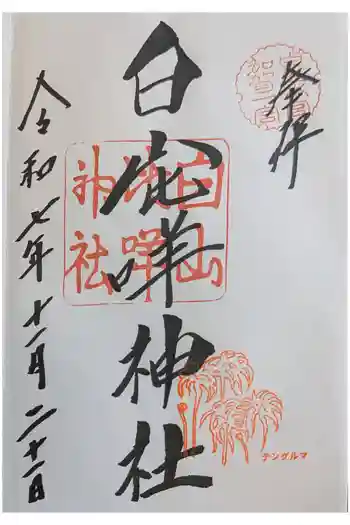 奉拝
白山比咩神社
白山
比咩
神社
チングルマ
令和七年十一月二十一日